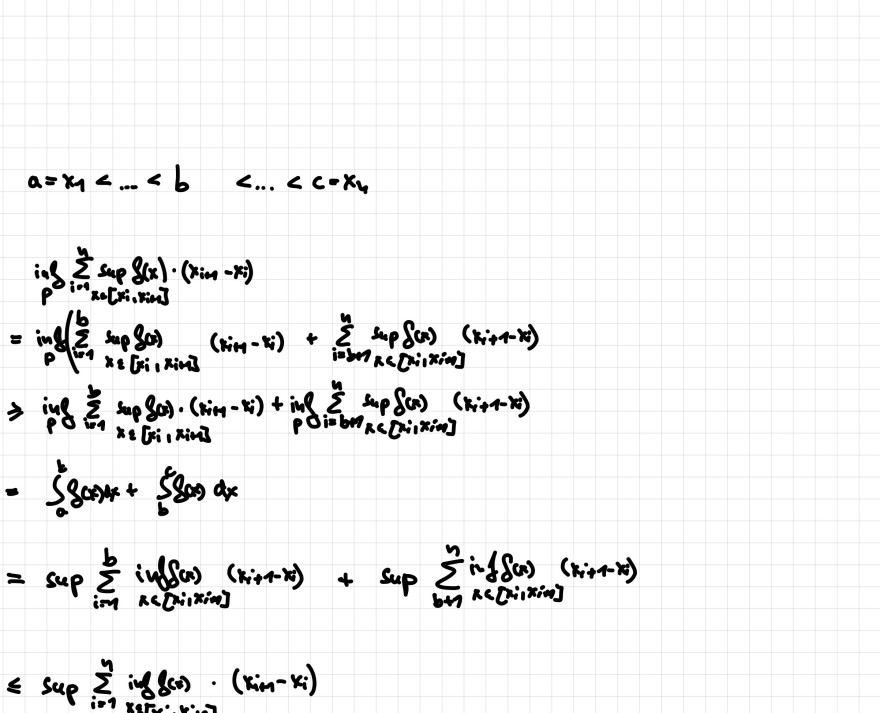 a = x₁ < ... < b < ... < c = xₙ
inf_P Σ_{i=1}^{n} sup_{x∈[x_i, x_{i+1}]} f(x) · (x_{i+1} - x_i)
= inf_P ( Σ_{i=1}^{b} sup_{x∈[x_i, x_{i+1}]} f(x) (x_{i+1} - x_i) + Σ_{i=b+1}^{n} sup_{x∈[x_i, x_{i+1}]} f(x) (x_{i+1} - x_i)
≥ inf_P Σ_{i=1}^{b} sup_{x∈[x_i, x_{i+1}]} f(x) · (x_{i+1} - x_i) + inf_P Σ_{i=b+1}^{n} sup_{x∈[x_i, x_{i+1}]} f(x) (x_{i+1} - x_i)
= ∫_a^b f(x) dx + ∫_b^c f(x) dx
= sup Σ_{i=1}^{b} inf_{x∈[x_i, x_{i+1}]} f(x) (x_{i+1} - x_i) + sup Σ_{b+1}^{n} inf_{x∈[x_i, x_{i+1}]} f(x) (x_{i+1} - x_i)
≤ sup Σ_{i=1}^{n} inf_{x∈[x_i, x_{i+1}]} f(x) · (x_{i+1} - x_i)